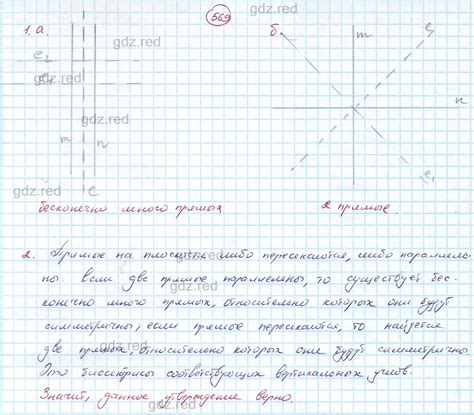 569
1. а.
gdz.red
б.
gdz.red
m
e
e₂
e₁
gdz.red
n
m
n
gdz.red
e
e₁
бесконечно много прямых
2 прямые
gdz.red
2. Прямые на плоскости либо пересекаются, либо параллель-
ны. Если две прямые параллельны, то существует бес-
конечно много прямых, относительно которых они будут
симметричны, если прямые пересекаются, то найдется
две прямых, относительно которых они будут симметричны.
Это биссектрисы соответствующих вертикальных углов.
Значит, данное утверждение верно.
gdz.red